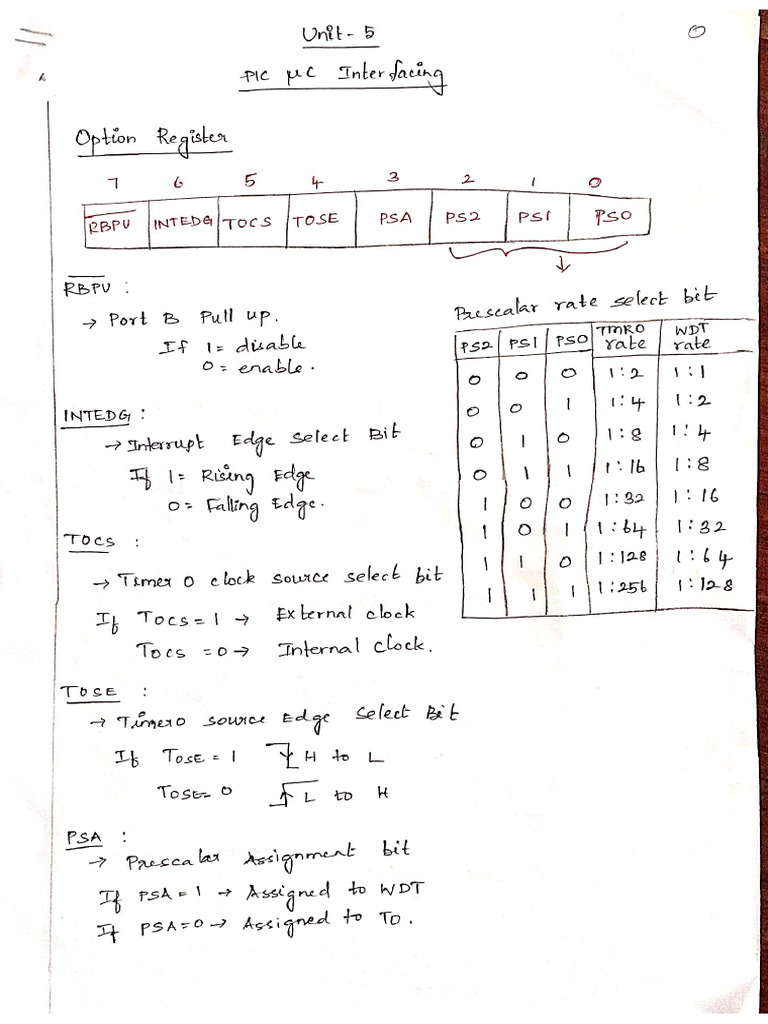 Unit-5
PIC μC Interfacing
Option Register
7 6 5 4 3 2 1 0
R̅B̅P̅U̅ INTEDG TOCS TOSE PSA PS2 PS1 PS0
R̅B̅P̅U̅ :
→ Port B Pull up.
If 1= disable
0= enable.
INTEDG :
→ Interrupt Edge Select Bit
If 1= Rising Edge
0= Falling Edge.
TOCS :
→ Timer 0 clock source select bit
If TOCS=1 → External clock
TOCS =0→ Internal Clock.
TOSE :
→ Timer0 source Edge Select Bit
If TOSE = 1 H to L
TOSE= 0 L to H
PSA :
→ Prescalar Assignment bit
If PSA=1 → Assigned to WDT
If PSA=0→ Assigned to TO.
Prescalar rate select bit
PS2 PS1 PS0 TMRO rate WDT rate
0 0 0 1:2 1:1
0 0 1 1:4 1:2
0 1 0 1:8 1:4
0 1 1 1:16 1:8
1 0 0 1:32 1:16
1 0 1 1:64 1:32
1 1 0 1:128 1:64
1 1 1 1:256 1:128